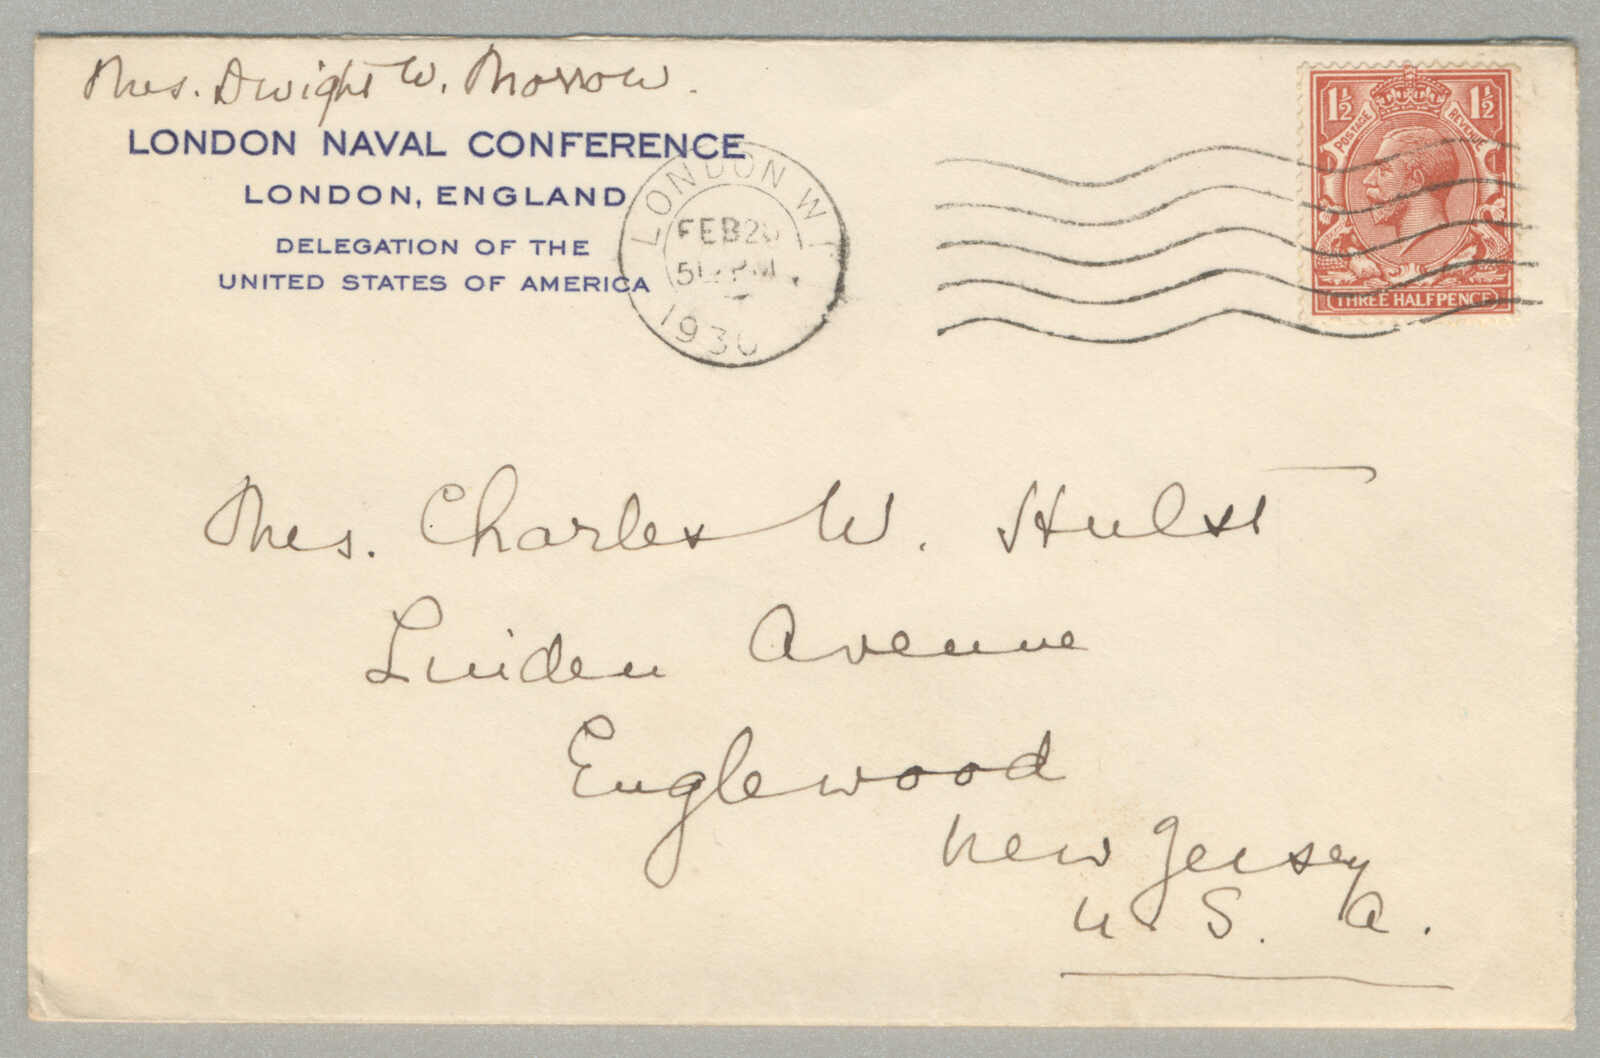 Mrs. Dwight W. Morrow.
LONDON NAVAL CONFERENCE
LONDON, ENGLAND
DELEGATION OF THE
UNITED STATES OF AMERICA
LONDON W.1
FEB 2
5 PM
1930
1½ 1½
POSTAGE REVENUE
THREE HALFPENCE
Mrs. Charles W. Hulst
Linden Avenue
Englewood
New Jersey
U. S. A.